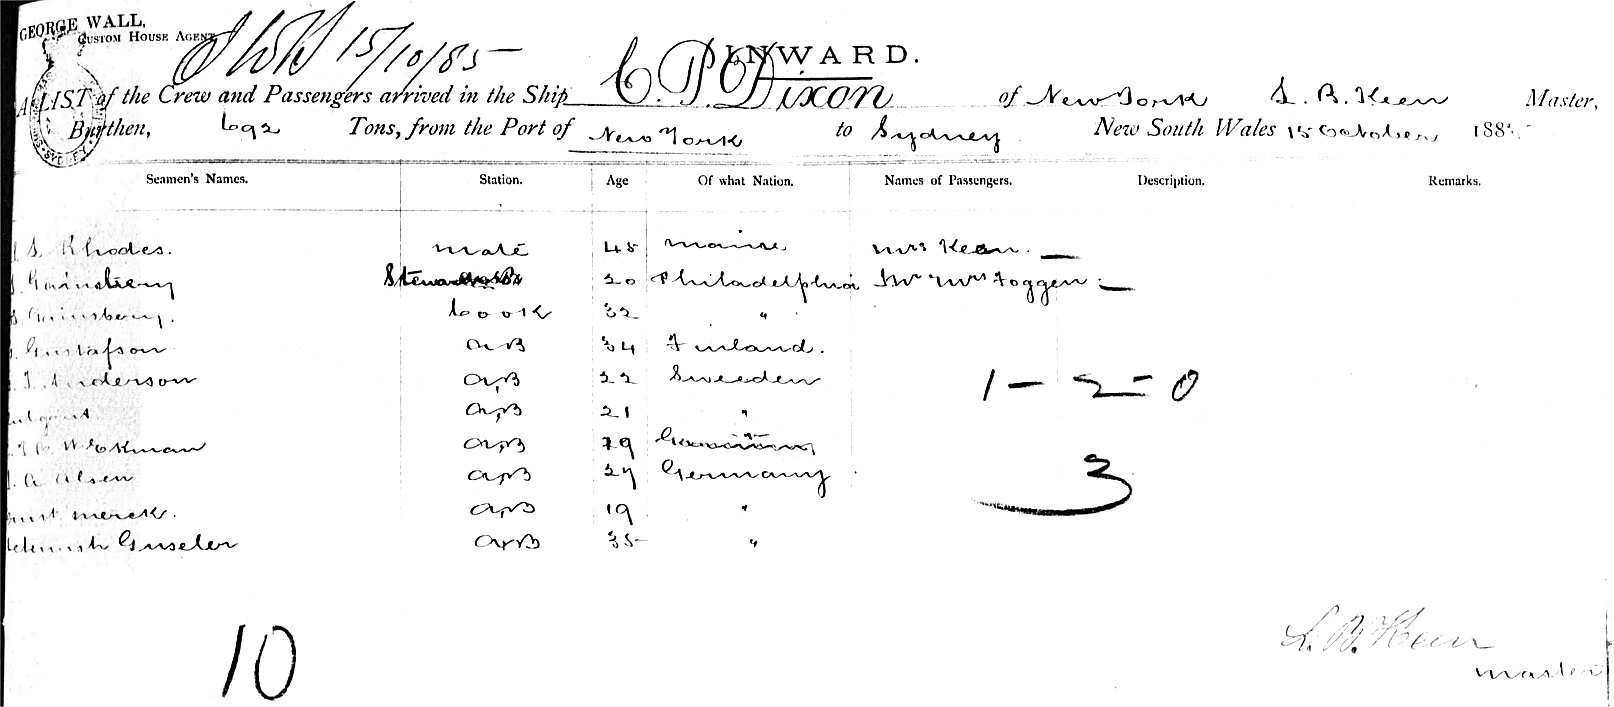 GEORGE WALL,
CUSTOM HOUSE AGENT
15/10/85
INWARD.
A LIST of the Crew and Passengers arrived in the Ship C. P. Dixon of New York L. B. Keen Master,
Burthen, 692 Tons, from the Port of New York to Sydney New South Wales 15 October 1885
Seamen's Names. Station. Age Of what Nation. Names of Passengers. Description. Remarks.
S. Rhodes. mate 45 maine mrs Keen. —
20 Philadelphia Mr & Mrs Foggen. —
Gainsbery. Cook 32 "
Gustafson A,B 34 Finland.
Anderson A,B 22 Sweeden 1 - 2 - 0
A,B 21 "
Ekman A,B 19
A. Alsen A,B 27 Germany 3
merck. A,B 19 "
Guseler A,B 35 "
10
L. B. Keen
master